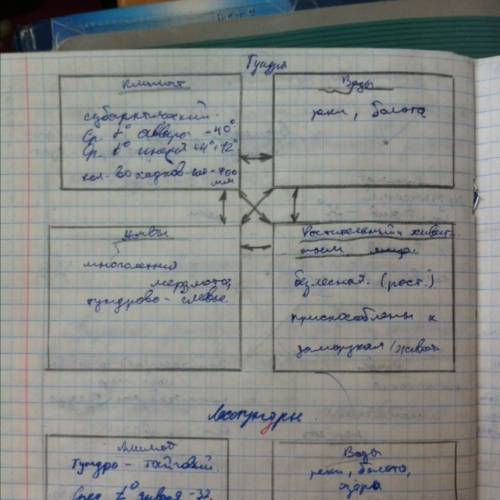 Тундра
Климат
субарктический.
Ср. t° января -40°
Ср. t° июля +4°+12°
кол-во
мм
Воды
реки, болота
Почвы
многолетняя
мерзлота,
тундрово-глевые
Растительный и живот
ный мир.
безлесная. (раст.)
приспособлены к
(живот.
Лесотундры.
Климат
Тундро-таёжный.
Сред. t° января -32.
Воды
реки, болота,
озёра